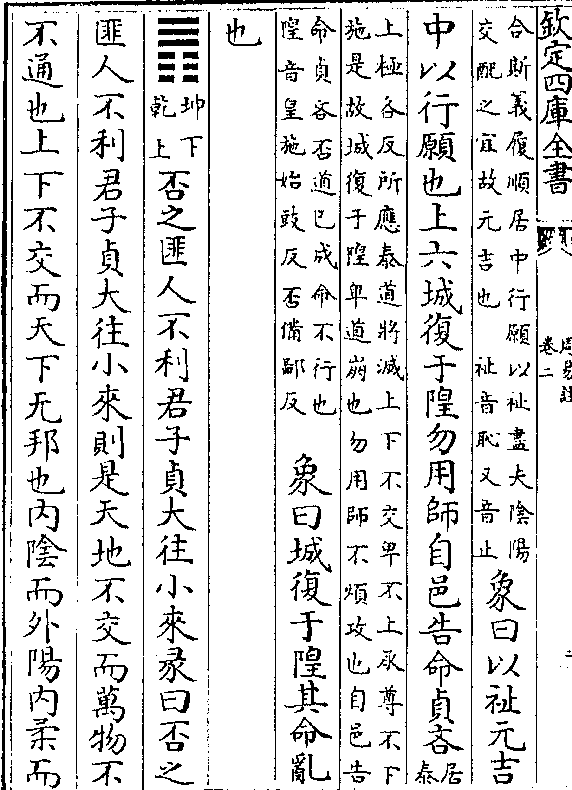 欽定四庫全書
周易註
卷二
合斯義履順居中行願以祉盡夫陰陽
交配之宜故元吉也 祉音恥又音止
象曰以祉元吉
中以行願也上六城復于隍勿用師自邑告命貞吝
居
泰
上極各反所應泰道將滅上下不交卑不上承尊不下
施是故城復于隍卑道崩也勿用師不煩攻也自邑告
命貞吝否道已成命不行也
隍音皇施始豉反否備鄙反
象曰城復于隍其命亂
也
䷋
坤下
乾上
否之匪人不利君子貞大往小來彖曰否之
匪人不利君子貞大往小來則是天地不交而萬物不
不通也上下不交而天下无邦也內陰而外陽內柔而